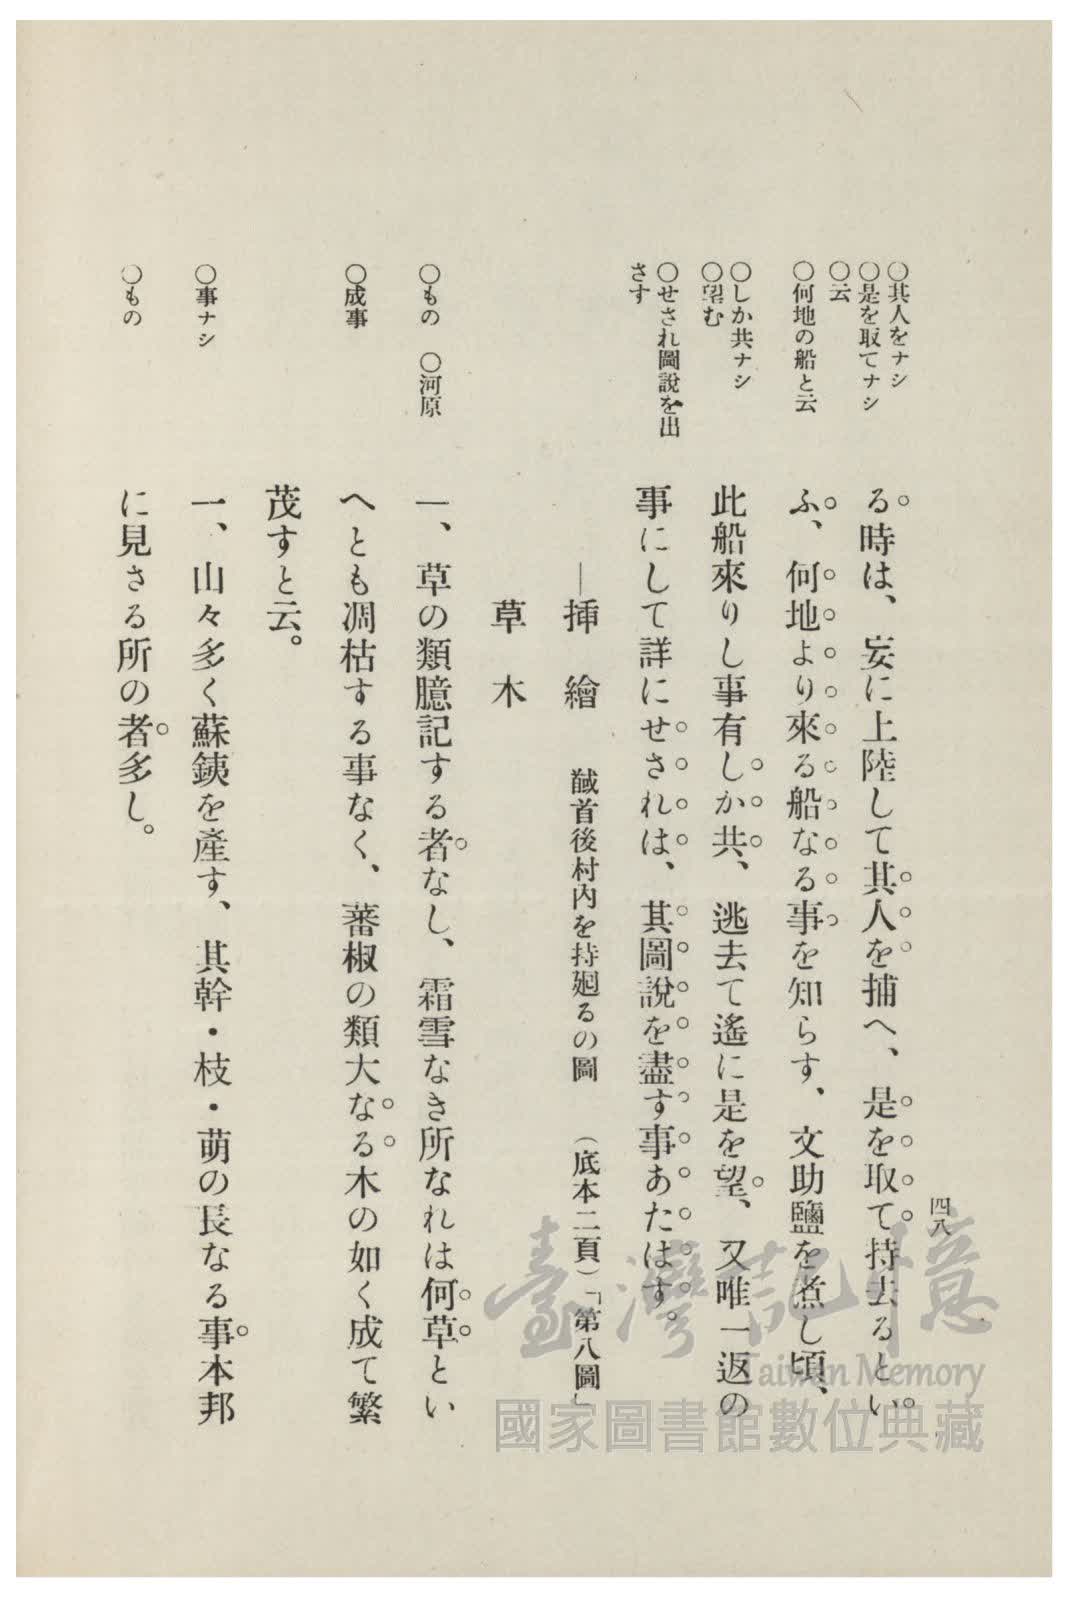 四八
○其人をナシ
○是を取てナシ
○云
○何地の船と云
○しか共ナシ
○望む
○せされ圖說を出
さす
○もの　○河原
○成事
○事ナシ
○もの
る時は、妄に上陸して其人を捕へ、是を取て持去るとい
ふ、何地より來る船なる事を知らす、文助鹽を煮し頃、
此船來りし事有しか共、逃去て遙に是を望、又唯一返の
事にして詳にせされは、其圖說を盡す事あたはす。
―揷繪　馘首後村內を持廻るの圖　（底本二頁）「第八圖」
草木
一、草の類臆記する者なし、霜雪なき所なれは何草とい
へとも凋枯する事なく、蕃椒の類大なる木の如く成て繁
茂すと云。
一、山々多く蘇鐵を產す、其幹・枝・萌の長なる事本邦
に見さる所の者多し。
臺灣記憶
Taiwan Memory
國家圖書館數位典藏